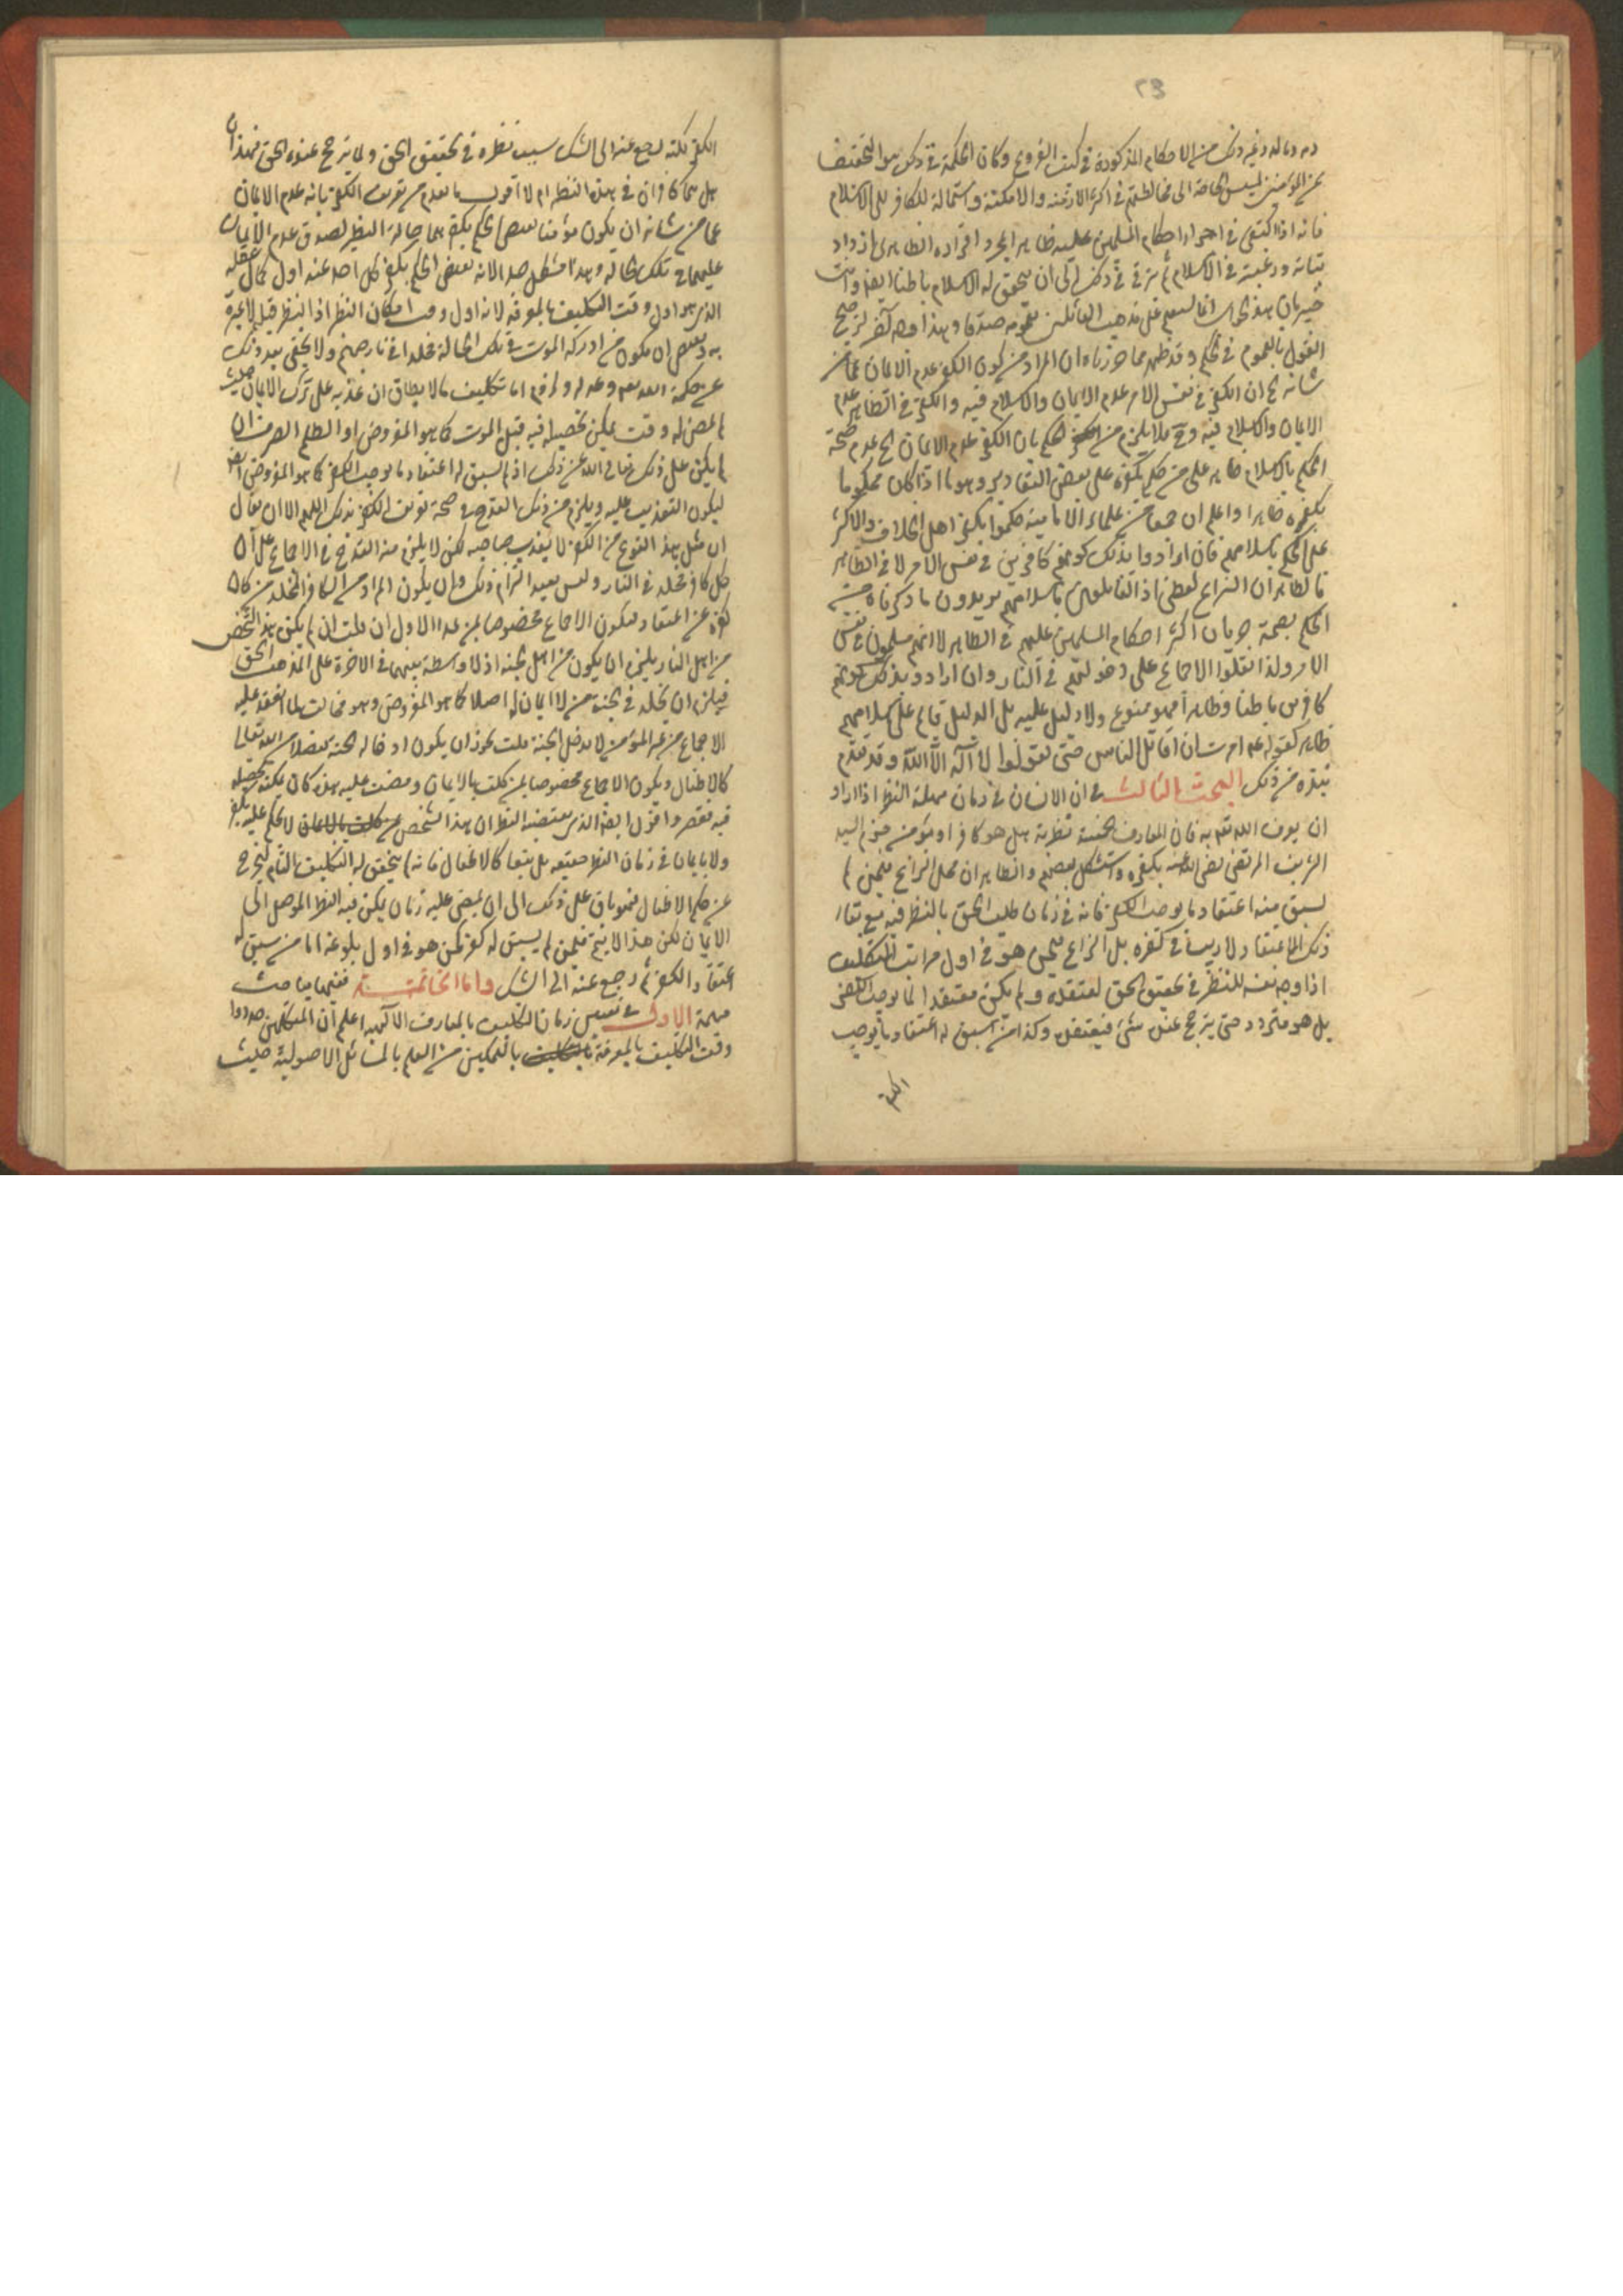 ٢٣
دمه وماله وغير ذلك من الاحكام المذكورة في كتب الفروع وكان الحكمة في ذلك هو التخفيف
عن المؤمنين لمسيس الحاجة الى مخالطتهم في اكثر الازمنة والامكنة واستمالة للكافر الى الاسلام
فانه اذا اكتفى في اجراء احكام المسلمين عليه ظاهرا بمجرد اقراره الظاهرى ازداد
ثباته ورغبته في الاسلام ثم يترقى في ذلك الى ان يتحقق له الاسلام باطنا ايضا وانت
خبير بان هذا الجواب انما يستقيم على مذهب القائلين بعمومه صدقا وهذا وجه آخر لترجيح
القول بالعموم في الحكم وقد ظهر مما حررناه ان المراد من كون الكفر عدم الايمان عما من
شانه الخ ان الكفر في نفس الامر عدم الايمان والاسلام فيه والكفر في الظاهر عدم
الايمان والاسلام فيه وح فلا يلزم من الحكم بان الكفر عدم الايمان الخ عدم صحة
الحكم بالاسلام ظاهرا على من حكم بكفره على بعض التقادير وهو ما اذا كان محكوما
بكفره ظاهرا واعلم ان جمعا من علماء الامامية حكموا بكفر اهل الخلاف والاكثر
على الحكم باسلامهم فان ارادوا بذلك كونهم كافرين في نفس الامر لا في الظاهر
فالظاهر ان النزاع لفظى اذ القائلون باسلامهم يريدون ما ذكرناه من
الحكم بصحة جريان اكثر احكام المسلمين عليهم في الظاهر لا انهم مسلمون في نفس
الامر ولذا نقلوا الاجماع على دخولهم في النار وان ارادوا بذلك كونهم
كافرين باطنا وظاهرا فهو ممنوع ولا دليل عليه بل الدليل قايم على اسلامهم
ظاهرا كقوله عم امرت ان اقاتل الناس حتى يقولوا لا اله الا الله وقد تقدم
نبذة من ذلك البحث الثالث في ان الانسان في زمان مهلة النظر اذا اراد
ان يعرف الله تعم به فان المعارف الخمسة نظرية هل هو كافر او مؤمن جزم السيد
الشريف المرتضى رضى الله عنه بكفره واستشكل بعضهم والظاهر ان محل النزاع فيمن لم
يسبق منه اعتقاد ما يوجب الكفر فانه في زمان طلب الحق بالنظر فيه مع بقاء
ذلك الاعتقاد لا ريب في كفره بل النزاع فيمن هو في اول مراتب التكليف
اذا وجه نفسه للنظر في تحقيق الحق ليعتقده ولم يكن معتقدا لما يوجب الكفر
بل هو متردد حتى يترجح عنده شئ فيعتقده وكذا من سبق له اعتقاد ما يوجب
الكفر
الكفر لكنه رجع عنه الى الشك بسبب نظره في تحقيق الحق ولما يترجح عنده الحق فهذان
هل هما كافران في هذه النظر ام لا اقول ما تقدم من تعريف الكفر بانه عدم الايمان
عما من شانه ان يكون مؤمنا يقتضى الحكم بكفرهما حالة النظر لصدق عدم الايمان
عليهما في تلك الحالة وهذا مشكل جدا لانه يقتضى الحكم بكفر كل احد عند اول كمال عقله
الذى هو اول وقت التكليف بالمعرفة لانه اول وقت امكان النظر اذ النظر قبله لا عبرة
به ويقتضى ان يكون من ادركه الموت في تلك الحالة مخلدا في نار جهنم ولا يخفى بعد ذلك
عن حكمة الله تعم وعدله ولزم اما تكليف ما لا يطاق ان عذبه على ترك الايمان حيث
لم يمض له وقت يمكن تحصيله فيه قبل الموت كما هو المفروض او الظلم الصرف ان
لم يكن على ذلك تعالى الله عن ذلك اذ لم يسبق له اعتقاد ما يوجب الكفر كما هو المفروض ايضا
ليكون التعذيب عليه ويلزم من ذلك القدح في صحة تعريف الكفر بذلك اللهم الا ان يقال
ان مثل هذا النوع من الكفر لا يعذب صاحبه لكن لا يلزم منه القدح في الاجماع على ان
كل كافر مخلد في النار وليس يبعد التزام ذلك وان يكون المراد من الكافر المخلد من كان
كفره عن اعتقاد فيكون الاجماع مخصوصا بمن عدا الاول ان قلت ان لم يكن هذا الشخص
من اهل النار يلزم ان يكون من اهل الجنة اذ لا واسطة بينهما في الاخرة على المذهب الحق
فيلزم ان يخلد في الجنة من لا ايمان له اصلا كما هو المفروض وهو مخالف لما انعقد عليه
الاجماع من غير المؤمن لا يدخل الجنة قلت يجوز ان يكون ادخاله الجنة تفضلا من الله تعالى
كالاطفال ويكون الاجماع مخصوصا بمن كلف بالايمان ومضت عليه مدة كان يمكنه تحصيله
فيه فقصر واقول ايضا الذى يقتضيه النظر ان هذا الشخص لا يحكم عليه بكفر
ولا بايمان في زمان النظر حقيقة بل تبعا كالاطفال فانه لم يتحقق له التكليف التام ليخرج
عن حكم الاطفال فهو باق على ذلك الى ان يمضى عليه زمان يمكن فيه النظر الموصل الى
الايمان لكن هذا لا يتم فيمن لم يسبق له كفر كمن هو في اول بلوغه اما من سبق له
اعتقاد الكفر ثم رجع عنه الى الشك واما الخاتمة ففيها مباحث
مهمة الاول في تعيين زمان التكليف بالمعارف الالهية اعلم ان المتكلمين حددوا
وقت التكليف بالمعرفة بالتمكين من العلم بالمسائل الاصولية حيث